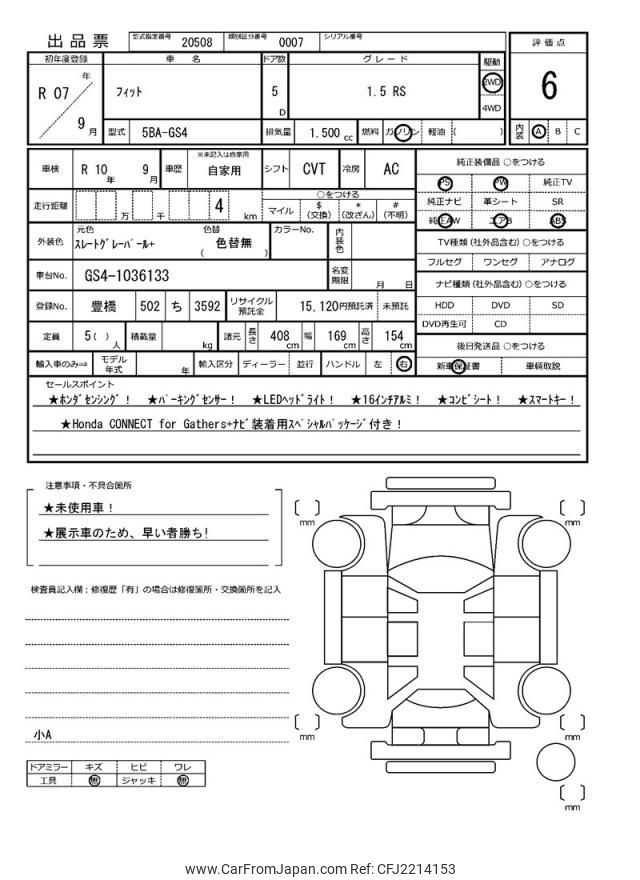 出品票 型式指定番号 20508 類別区分番号 0007 シリアル番号
初年度登録 車名 ドア数 グレード 駆動 評価点
R 07 年 9 月 フィット 5 D 1.5 RS 2WD 4WD 6
型式 5BA-GS4 排気量 1.500 cc 燃料 ガソリン 軽油 ( ) 内装 A B C
車検 R 10 年 9 月 車歴 ※未記入は自家用 自家用 シフト CVT 冷房 AC 純正装備品 ○をつける
PS PW 純正TV
走行距離 万 千 4 km ○をつける
マイル $ (交換) * (改ざん) # (不明)
純正ナビ 革シート SR
純正AW エアB ABS
外装色 元色 スレートグレーパール+ 色替 ( 色替無 ) カラーNo. 内装色
TV種類 (社外品含む) ○をつける
フルセグ ワンセグ アナログ
車台No. GS4-1036133 名変期限 月 日
ナビ種類 (社外品含む) ○をつける
登録No. 豊橋 502 ち 3592 リサイクル預託金 15,120円預託済 未預託
HDD DVD SD
DVD再生可 CD
定員 5 ( ) 人 積載量 kg 諸元 長さ 408 cm 幅 169 cm 高さ 154 cm
後日発送品 ○をつける
輸入車のみ⇒ モデル年式 年 輸入区分 ディーラー 並行 ハンドル 左 右
新車保証書 車輌取説
セールスポイント
★ホンダセンシング! ★パーキングセンサー! ★LEDヘッドライト! ★16インチアルミ! ★コンビシート! ★スマートキー!
★Honda CONNECT for Gathers+ナビ装着用スペシャルパッケージ付き!
注意事項・不具合箇所
★未使用車!
★展示車のため、早い者勝ち!
検査員記入欄:修復歴「有」の場合は修復箇所・交換箇所を記入
小A
ドアミラー キズ ヒビ ワレ
工具 無 ジャッキ 無
mm
mm
mm
mm
mm
www.CarFromJapan.com Ref: CFJ2214153